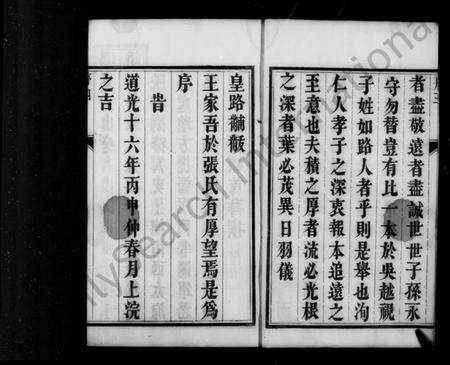 者盡敬遠者盡誠世世子孫永
守勿替豈有比一本於吳越視
子姓如路人者乎則是舉也洵
仁人孝子之深衷報本追遠之
至意也夫積之厚者流必光根
之深者葉必茂異日羽儀
皇路黼黻
王家吾於張氏有厚望焉是為
序
旹
道光十六年丙申仲春月上浣
之吉